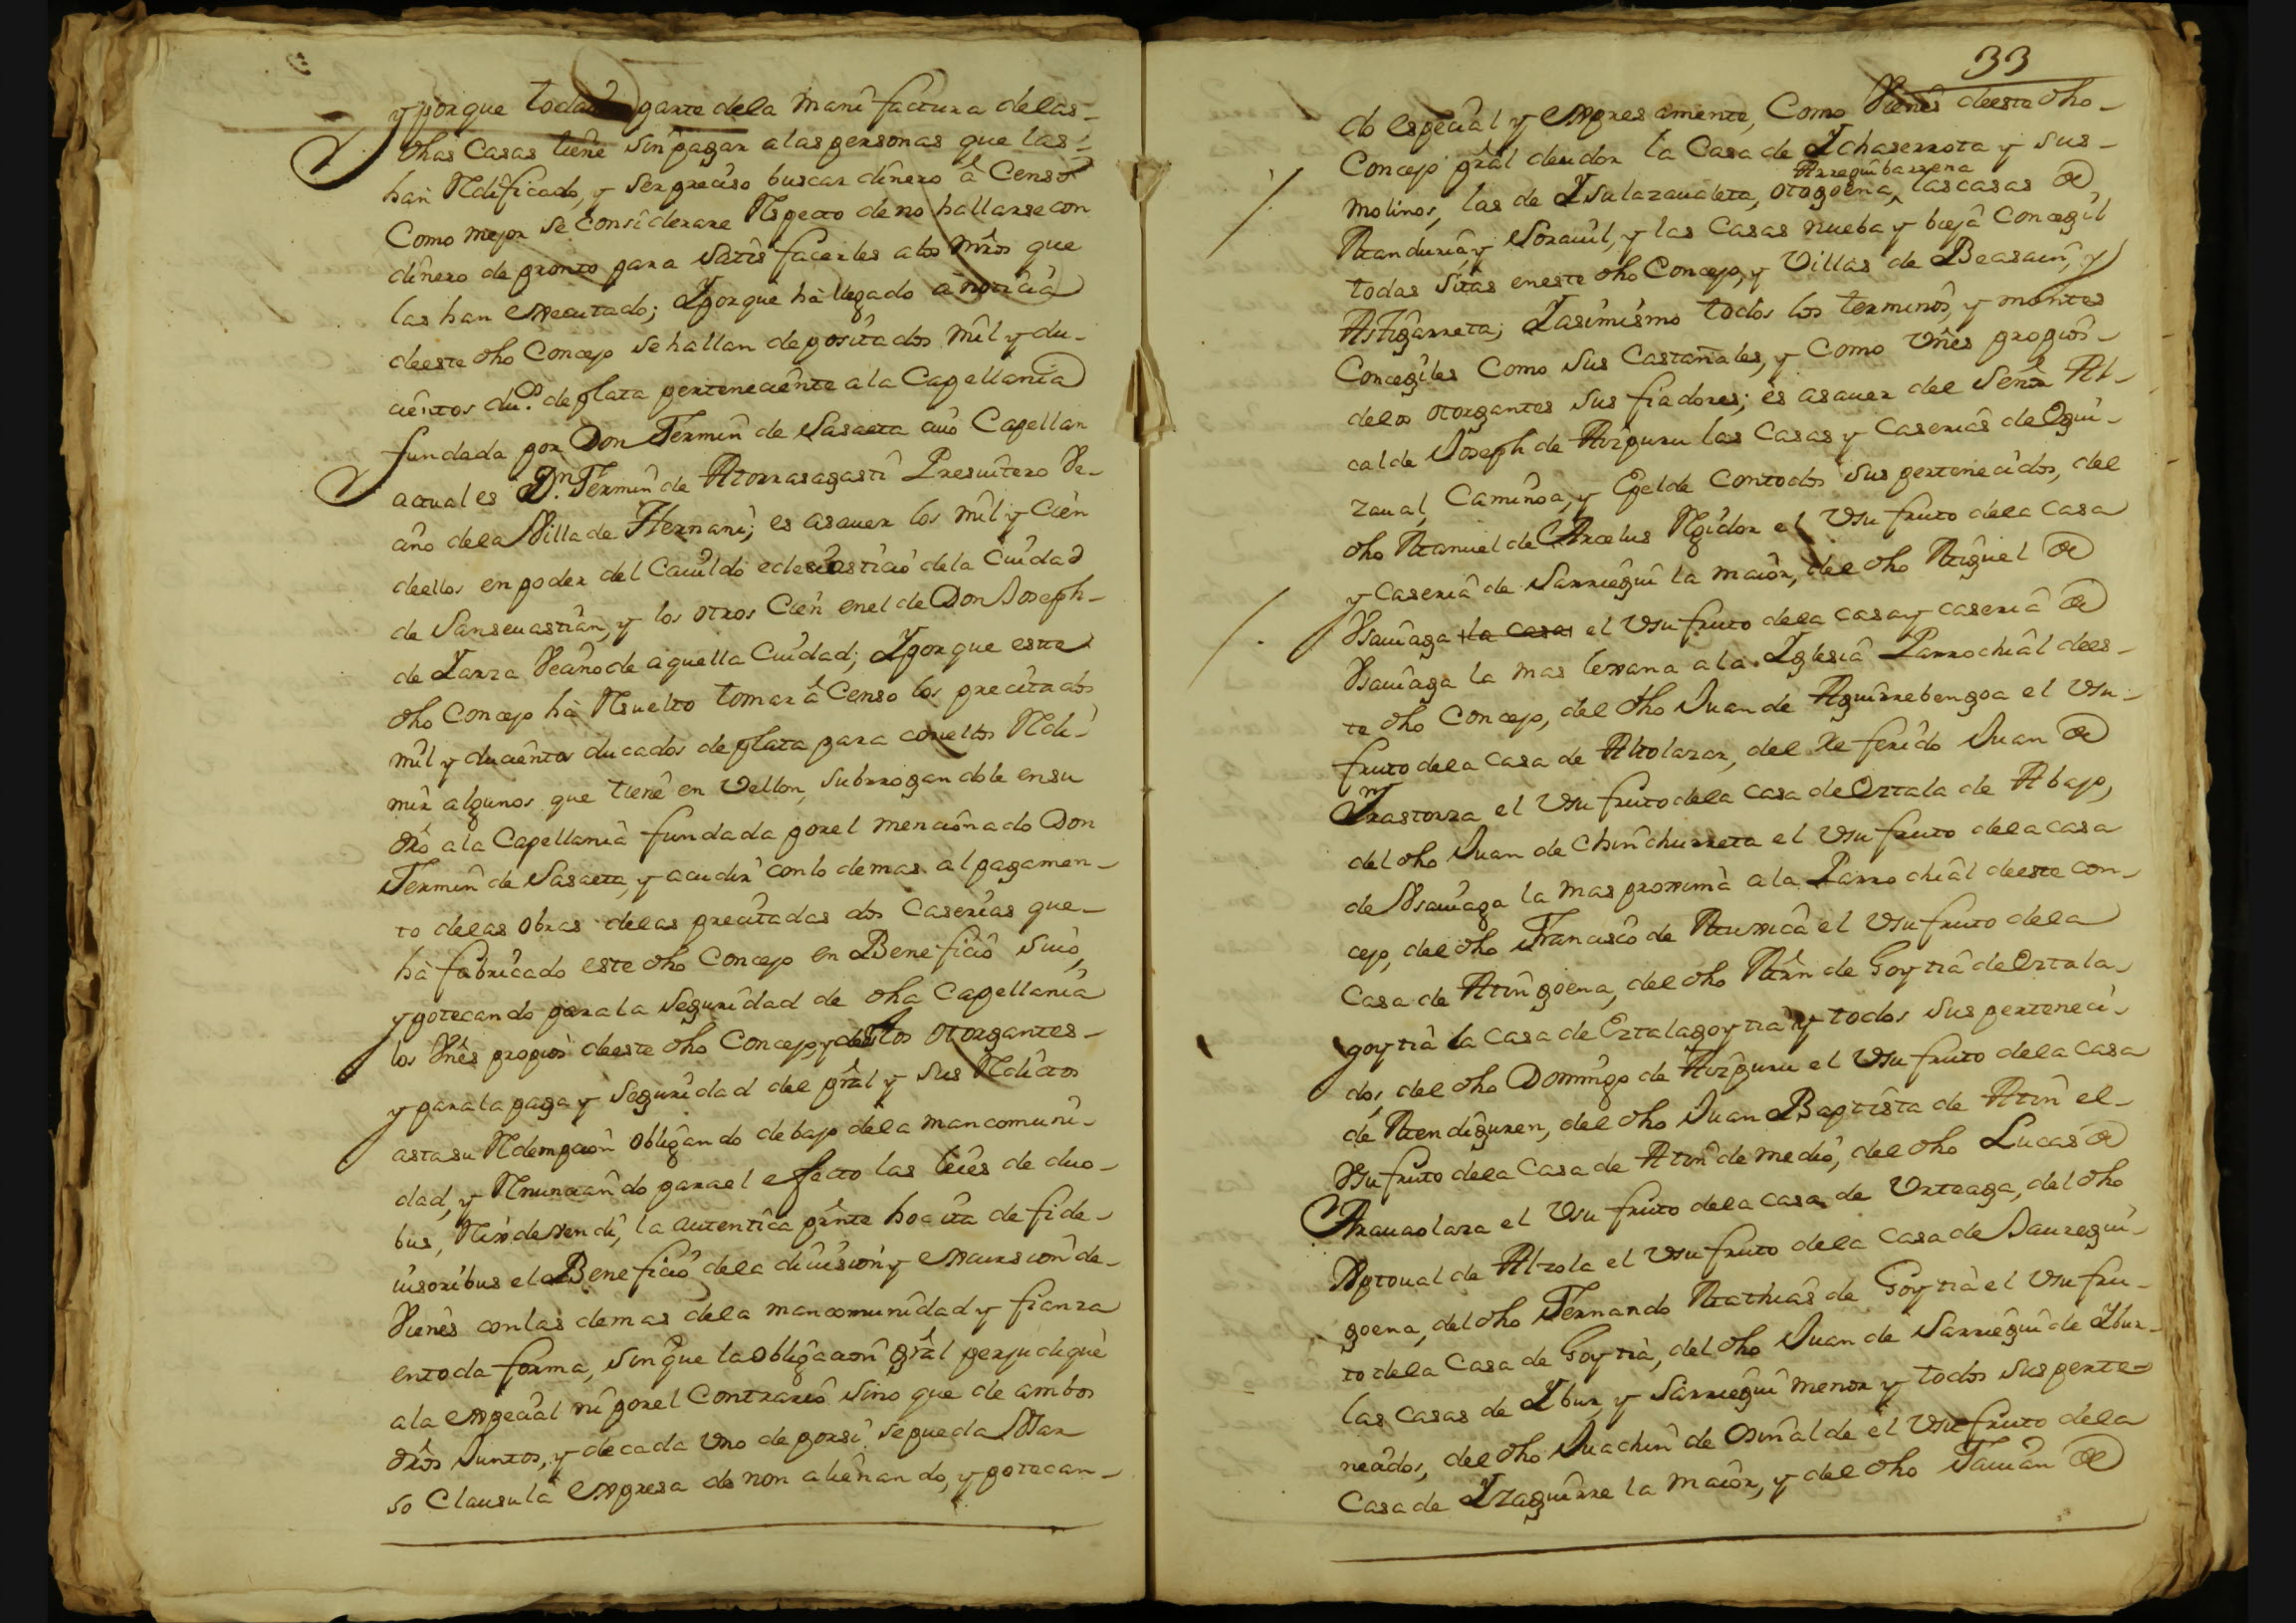 y porque toda parte dela manifactura delas
dhas Casas tiene sin pagar alas personas que las
han Redificado, y ser preciso buscar dinero à Censo
Como mejor se considerare Respecto de no hallarse con
dinero de pronto para satisfacerles alos mrõs que
las han executado; Y porque hà llegado à noticia
deeste dho Concejo se hallan depositados mil y du-
cientos du.s de plata perteneciente ala Capellania
fundada por Don Fermin de Sasaeta cuio Capellan
actual es D.n Fermin de Atorrasagasti Presuitero Ve-
cino dela Villa de Hernani; es asauer los mil y Cien
deellos en poder del Cauildo eclesiastico dela Ciudad
de Sanseuastian, y los otros Cien enel de Don Joseph
de Yarza Vecino de aquella Ciudad; Y porque este
dho Concejo hà Resuelto tomar à Censo los precitados
mil y ducientos ducados de plata para coneltos Redi-
mir algunos que tiene en Vellon, subrrogandole en su
dro ala Capellania fundada porel mencionado Don
Fermin de Sasaeta, y acudir conlo demas al pagamen-
to delas obras delas precitadas dos Caserias que
hà fabricado este dho Concejo en Beneficio suio,
ypotecando parala seguridad de dha Capellania
los Vnês propios deeste dho Concejo, y delos otorgantes
y parala paga y seguridad del prâl y sus Reditos
asta su Redempcion obligando debajo dela mancomuni-
dad, y Renunciando parael efecto las leies de duo-
bus, Rex devendi, la autentica presnte hoc ita de fide-
iusoribus el Beneficio dela diuision y excursion de
Vienes conlas demas dela mancomunidad y fianza
entoda forma, sin que la obligacion gral perjudique
ala especial ni porel Contrario sino que de ambos
drõs Juntos, y decada Uno de porsi sepueda Usar
so Clausula expresa de non alienando, ypotecan-
33
do especial y expresamente, Como Vienes deeste dho
Concejo prãl deudor la Casa de Ychaserrota y sus
Arreguibarrena
Molinos, las de Ysulazaualeta, otogoena, las casas de
Manduria, y Sorauil, y las Casas nueba y bieja Concegil
todas sitas eneste dho Concejo, y Villas de Beasain, y
Astigarreta; Y asimismo todos los terminos, y montes
Concegiles Como sus Castañales, y Como Vñes propios
delos otorgantes sus fiadores; es asauer del Señor Al-
calde Joseph de Aizpuru las Casas y Caserias de Egui-
zaual, Caminoa, y Epelde Contodos sus pertenecidos, del
dho Manuel de Arcelus Regidor el Vsufruto dela Casa
y Caseria de Sarriegui la maior, del dho Miguel de
Vsauiaga la casa el Vsufruto dela casa y caseria de
Vsauiaga la mas lexana ala Yglesia Parrochial dees-
te dho Concejo, del dho Juan de Aguirrebengoa el Vsu-
fruto dela Casa de Altolazar, del Referido Juan de
Yrastorza el Vsufruto dela casa de Ertala de Abajo,
del dho Juan de Chinchurreta el Vsufruto dela casa
de Vsauiaga la mas proxima ala Parrochial deeste con-
cejo, del dho Francisco de Muxica el Vsufruto dela
Casa de Atingoena, del dho Mrn de Goytia de Ertala-
goytia la casa de Ertalagoytia y todos sus perteneci-
dos, del dho Domingo de Aizpuru el Vsufruto dela casa
de Mendiguren, del dho Juan Baptista de Atin el
Vsufruto dela Casa de Atin de medio, del dho Lucas de
Arauaolaza el Vsufruto dela casa de Urteaga, del dho
Xptoual de Alzola el Vsufruto dela casa de Jauregui-
goena, del dho Fernando Mathias de Goytia el Vsufru-
to dela Casa de Goytia, del dho Juan de Sarriegui de Ybur
las casas de Ybur, y Sarriegui menor y todos sus perte-
necidos, del dho Juachin de Osinalde el Vsufruto dela
Casa de Yzaguirre la maior, y del dho Fauian de